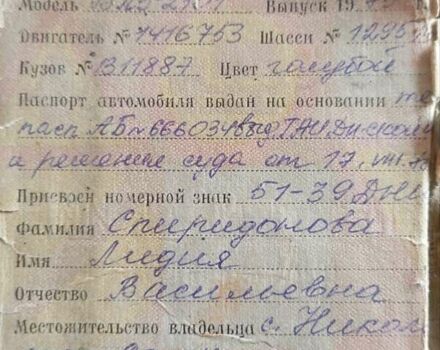 Модель ВАЗ 2101 Выпуск 19
Двигатель № 7416753 Шасси № 1295
Кузов № В11887 Цвет голубой
Паспорт автомобиля выдан на основании
пасп АБ № 666034 ГАИ
и решение суда от 17.
Присвоен номерной знак 51-39
Фамилия Спиридонова
Имя Лидия
Отчество Васильевна
Местожительство владельца с.